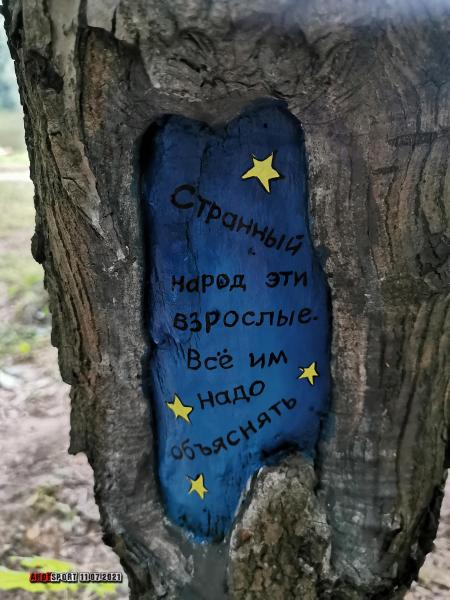 Странный
народ эти
взрослые.
Всё им
надо
объяснять
SPORT 11.07.2021